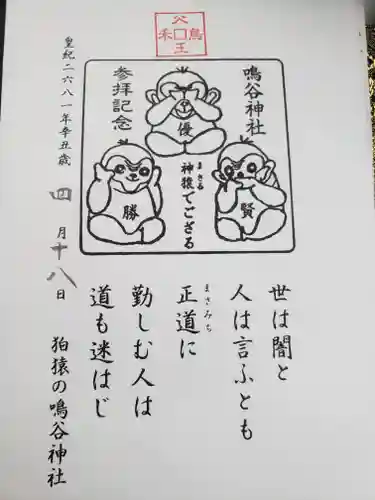 鳴谷神社
優
参拝記念
賢
神猿でござる
まさる
勝
世は闇と
人は言ふとも
正道に
まさみち
勤しむ人は
道も迷はじ
狛猿の鳴谷神社
皇紀二六八一年辛丑歳
四月十八日